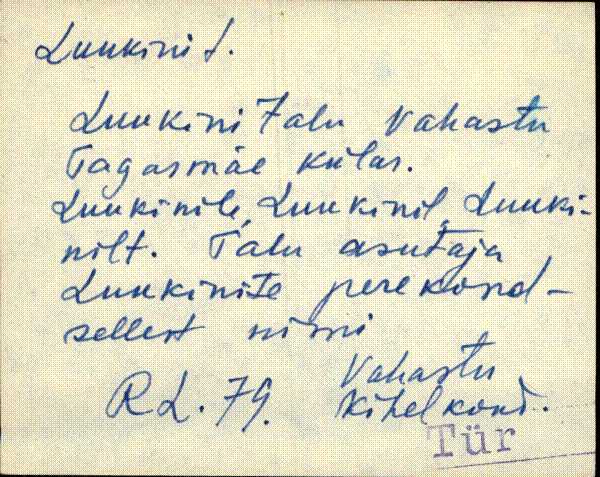 Luukini t.
Luukini Talu Vahastu
Tagasmäe külas.
Luukinile, Luukinil, Luuki-
nilt. Talu asutaja
Luukinite perekond-
sellest nimi
RL. 79. Vahastu
Kihelkond.
Tür